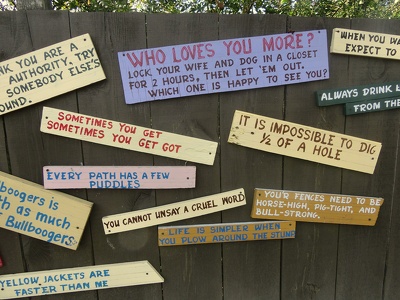 NK YOU ARE A
AUTHORITY, TRY
SOMEBODY ELSE'S
OUND.
WHO LOVES YOU MORE?
LOCK YOUR WIFE AND DOG IN A CLOSET
FOR 2 HOURS, THEN LET 'EM OUT.
WHICH ONE IS HAPPY TO SEE YOU?
WHEN YOU WA
EXPECT TO
ALWAYS DRINK
FROM THE
SOMETIMES YOU GET
SOMETIMES YOU GET GOT
IT IS IMPOSSIBLE TO DIG
½ OF A HOLE
EVERY PATH HAS A FEW
PUDDLES
boogers is
th as much
Bullboogers.
YOU CANNOT UNSAY A CRUEL WORD
YOU'R FENCES NEED TO BE
HORSE-HIGH, PIG-TIGHT, AND
BULL-STRONG.
LIFE IS SIMPLER WHEN
YOU PLOW AROUND THE STUMP
YELLOW JACKETS ARE
FASTER THAN ME